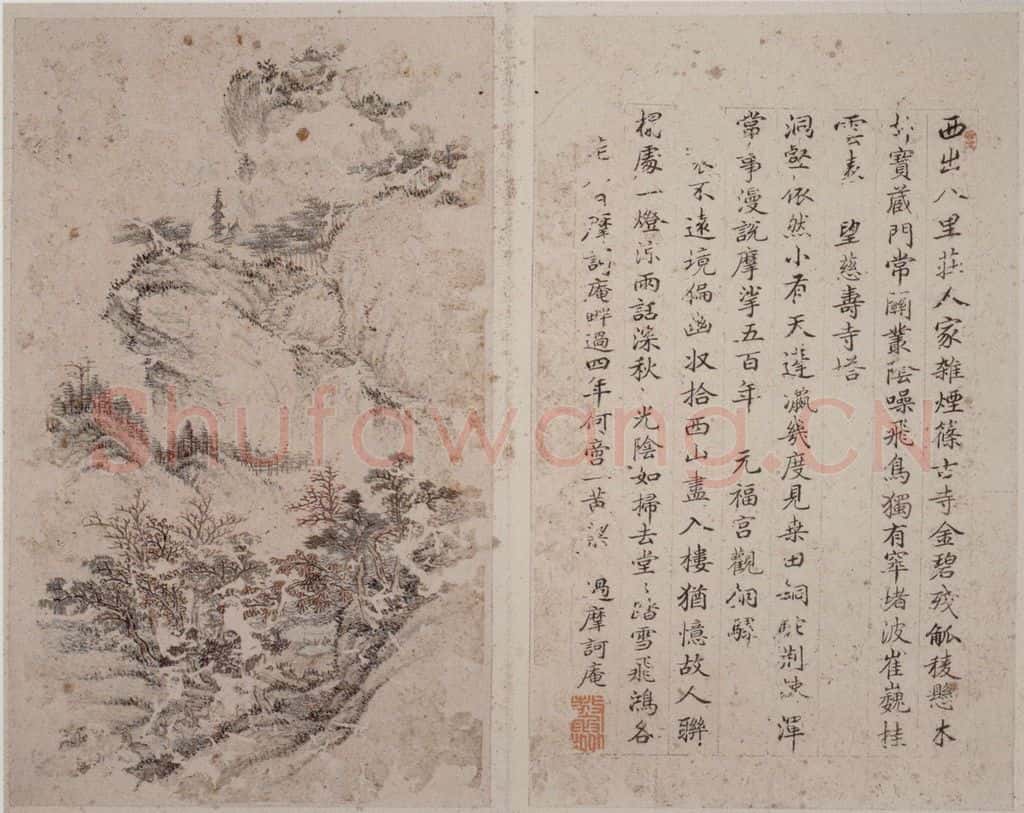 西出八里莊人家雜煙篠古寺金碧殘觚稜懸木
寶藏門常關叢陰噪飛鳥獨有窣堵波崔巍挂
雲表 望慈壽寺塔
洞壑依然小有天蓬瀛幾度見桑田銅駝荆棘渾
常事漫說摩挲五百年 元福宮觀銅驢
不遠境偏幽收拾西山盡入樓猶憶故人聯
榻處一燈涼雨話深秋 光陰如掃去堂堂踏雪飛鴻各
摩訶庵畔過四年何啻一黄 過摩訶庵
Shufawang.CN